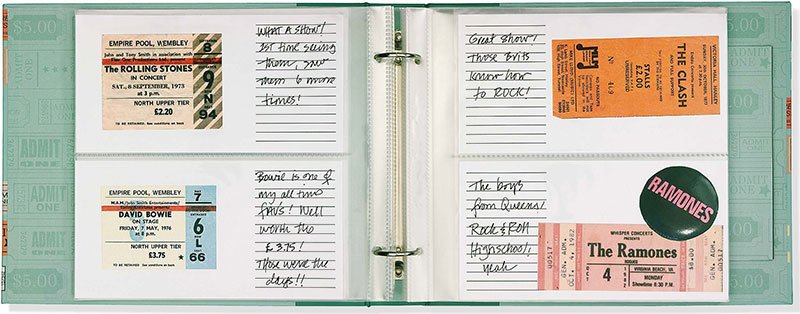 EMPIRE POOL, WEMBLEY
John and Tony Smith in association with
The ROLLING STONES
IN CONCERT
SAT., 8 SEPTEMBER, 1973
at 3 p.m.
NORTH UPPER TIER
£2.20
TO BE RETAINED. See conditions on back
8
ENTRANCE
9
N
94
WHAT A SHOW!
1st time seeing
them, saw
them 6 more
times!
EMPIRE POOL, WEMBLEY
M.A.M./John Smith Entertainments/
DAVID BOWIE
ON STAGE
FRIDAY, 7 MAY, 1976
at 8 p.m.
NORTH UPPER TIER
£3.75
TO BE RETAINED See conditions on back
7
ENTRANCE
6
L
66
Bowie is one of
my all time
FAVS! Well
worth the
£3.75!
Those were the
days!!
Great Show!
Those Brits
Know how
to ROCK!
VICTORIA HALL, HANLEY
THE CLASH
STALLS
£2.00
UNRESERVED
The boys
from Queens!
Rock & Roll
High school,
yeah
RAMONES
WHISPER CONCERTS
PRESENTS
The Ramones
4
VIRGINIA BEACH, VA
MONDAY
Showtime 8:30 P.M.
GEN. ADM.
OCT. 4, 1982
$8.00
00517
$5.00
ADMIT
ONE